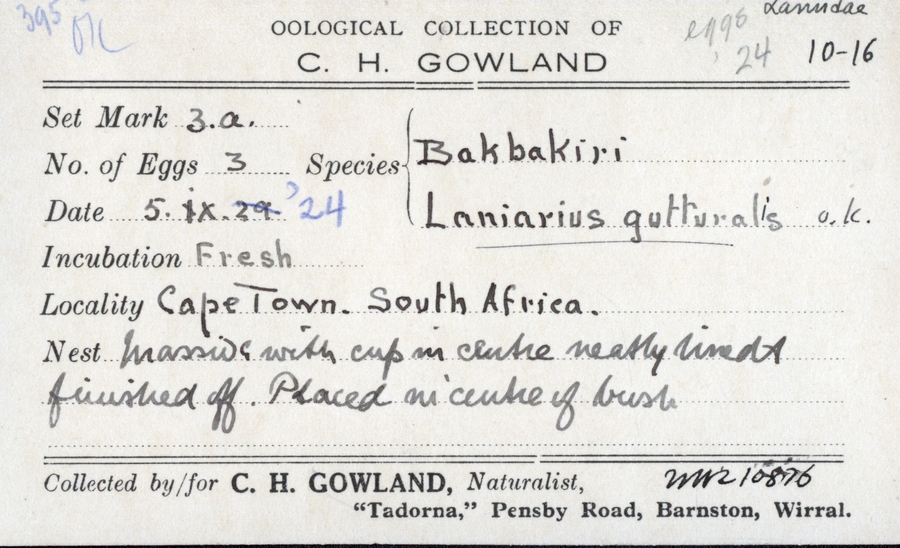 395 OK
Laniidae
OOLOGICAL COLLECTION OF eggs
C. H. GOWLAND '24 10-16
Set Mark 3.a.
No. of Eggs 3 Species Bakbakiri
Date 5. IX. 29 '24 Laniarius gutturalis o.k.
Incubation Fresh
Locality Cape Town. South Africa.
Nest Massive with cup in centre neatly lined &
finished off. Placed in centre of bush
Collected by/for C. H. GOWLAND, Naturalist,
"Tadorna," Pensby Road, Barnston, Wirral.